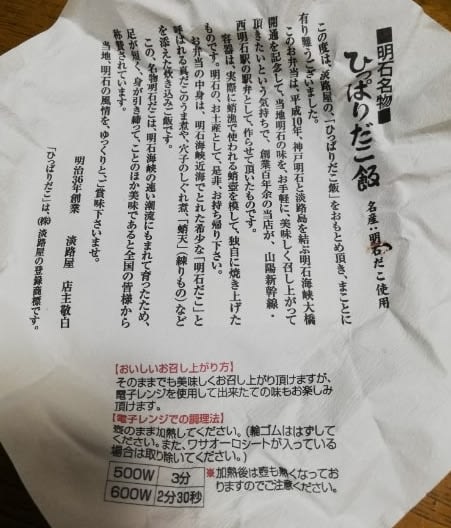 ■明石名物■
ひっぱりだこ飯
名産:明石だこ使用
この度は、淡路屋の「ひっぱりだこ飯」をおもとめ頂き、まことに
有り難うございました。
このお弁当は、平成10年、神戸明石と淡路島を結ぶ明石海峡大橋
開通を記念して、当地明石の味を、お手軽に、美味しく召し上がって
頂きたいという気持ちで、創業百年余の当店が、山陽新幹線・
西明石駅の駅弁として、作らせて頂いたものです。
容器は、実際に蛸漁で使われる蛸壺を模して、独自に焼き上げた
ものです。明石の、お土産として、是非、お持ち帰り下さい。
お弁当の中身は、明石海峡近海でとれた希少な「明石だこ」と
呼ばれる真だこのうま煮や、穴子のしぐれ煮、「蛸天」(練りもの)など
を添えた炊き込みご飯です。
この、名物明石だこは、明石海峡の速い潮流にもまれて育ったため、
足が短く、身が引き締って、ことのほか美味であると全国の皆様から
称賛されています。
当地、明石の風情を、ゆっくりと、ご賞味下さいませ。
明治36年創業 淡路屋 店主敬白
「ひっぱりだこ飯」は、㈱淡路屋の登録商標です。
【おいしいお召し上がり方】
そのままでも美味しくお召し上がり頂けますが、
電子レンジを使用して出来たての味もお楽しみ
頂けます。
【電子レンジでの調理法】
壺のまま加熱してください。(輪ゴムははずして
ください。また、ワサオーロシートが入っている
場合は取り除いてください。)
500W 3分
600W 2分30秒
※加熱後は壺も熱くなってお
りますのでご注意ください。